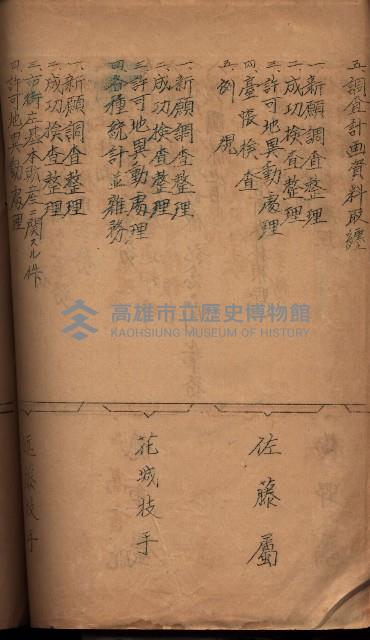 五、調查計画資料取纏
一、新願調査整理
二、成功検査整理
三、許可地異動處理
四、臺帳検査
五、例規
佐藤屬
一、新願調査整理
二、成功検査整理
三、許可地異動處理
四、各種統計並雜務
花城技手
一、新願調査整理
二、成功検査整理
三、市街庄基本財産ニ関スル件
四、許可地異動處理
近藤技手
高雄市立歷史博物館
KAOHSIUNG MUSEUM OF HISTORY